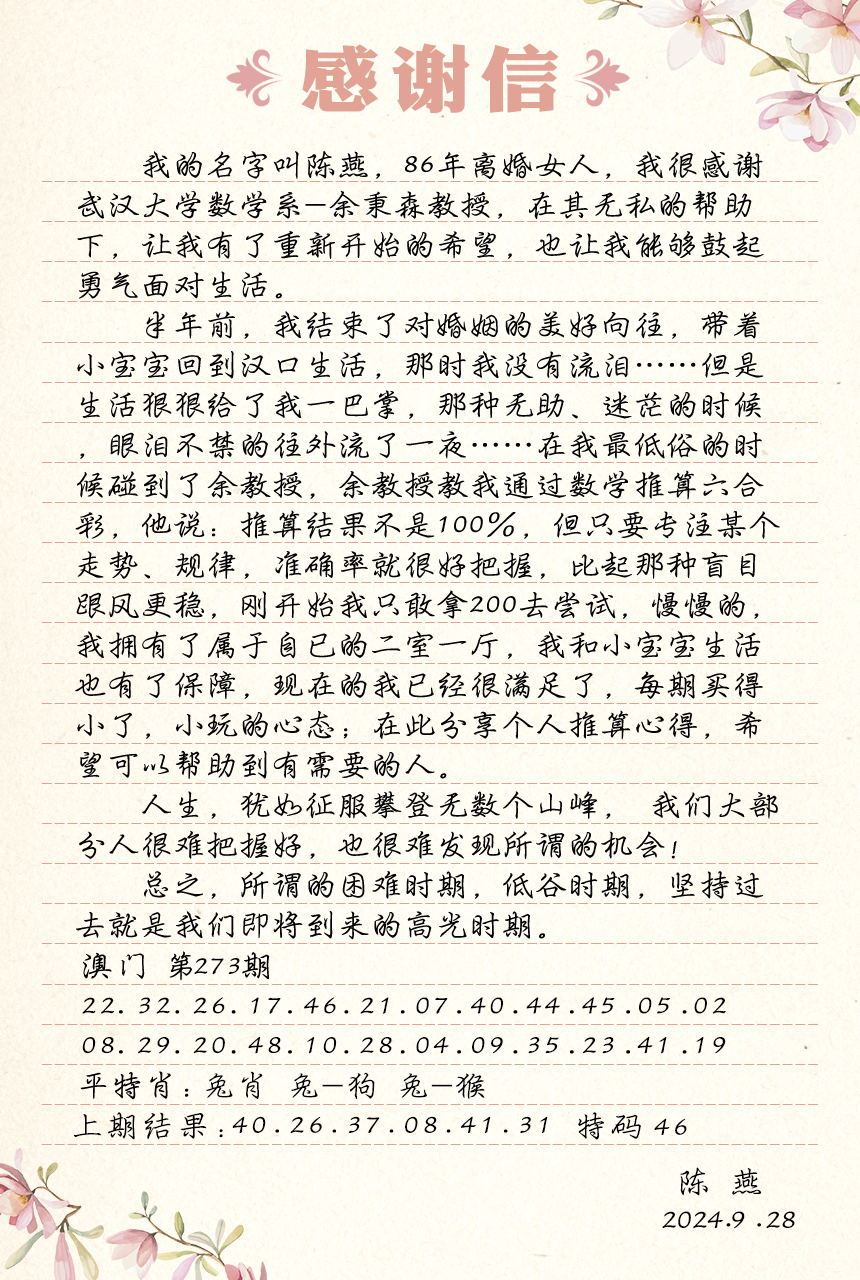 感谢信
我的名字叫陈燕，86年离婚女人，我很感谢
武汉大学数学系—余秉森教授，在其无私的帮助
下，让我有了重新开始的希望，也让我能够鼓起
勇气面对生活。
半年前，我结束了对婚姻的美好向往，带着
小宝宝回到汉口生活，那时我没有流泪……但是
生活狠狠给了我一巴掌，那种无助、迷茫的时候
，眼泪不禁的往外流了一夜……在我最低俗的时
候碰到了余教授，余教授教我通过数学推算六合
彩，他说：推算结果不是100%，但只要专注某个
走势、规律，准确率就很好把握，比起那种盲目
跟风更稳，刚开始我只敢拿200去尝试，慢慢的，
我拥有了属于自已的二室一厅，我和小宝宝生活
也有了保障，现在的我已经很满足了，每期买得
小了，小玩的心态；在此分享个人推算心得，希
望可以帮助到有需要的人。
人生，犹如征服攀登无数个山峰， 我们大部
分人很难把握好，也很难发现所谓的机会！
总之，所谓的困难时期，低谷时期，坚持过
去就是我们即将到来的高光时期。
澳门 第273期
22.32.26.17.46.21.07.40.44.45.05.02
08.29.20.48.10.28.04.09.35.23.41.19
平特肖：兔肖 兔—狗 兔—猴
上期结果：40.26.37.08.41.31 特码 46
陈 燕
2024.9.28